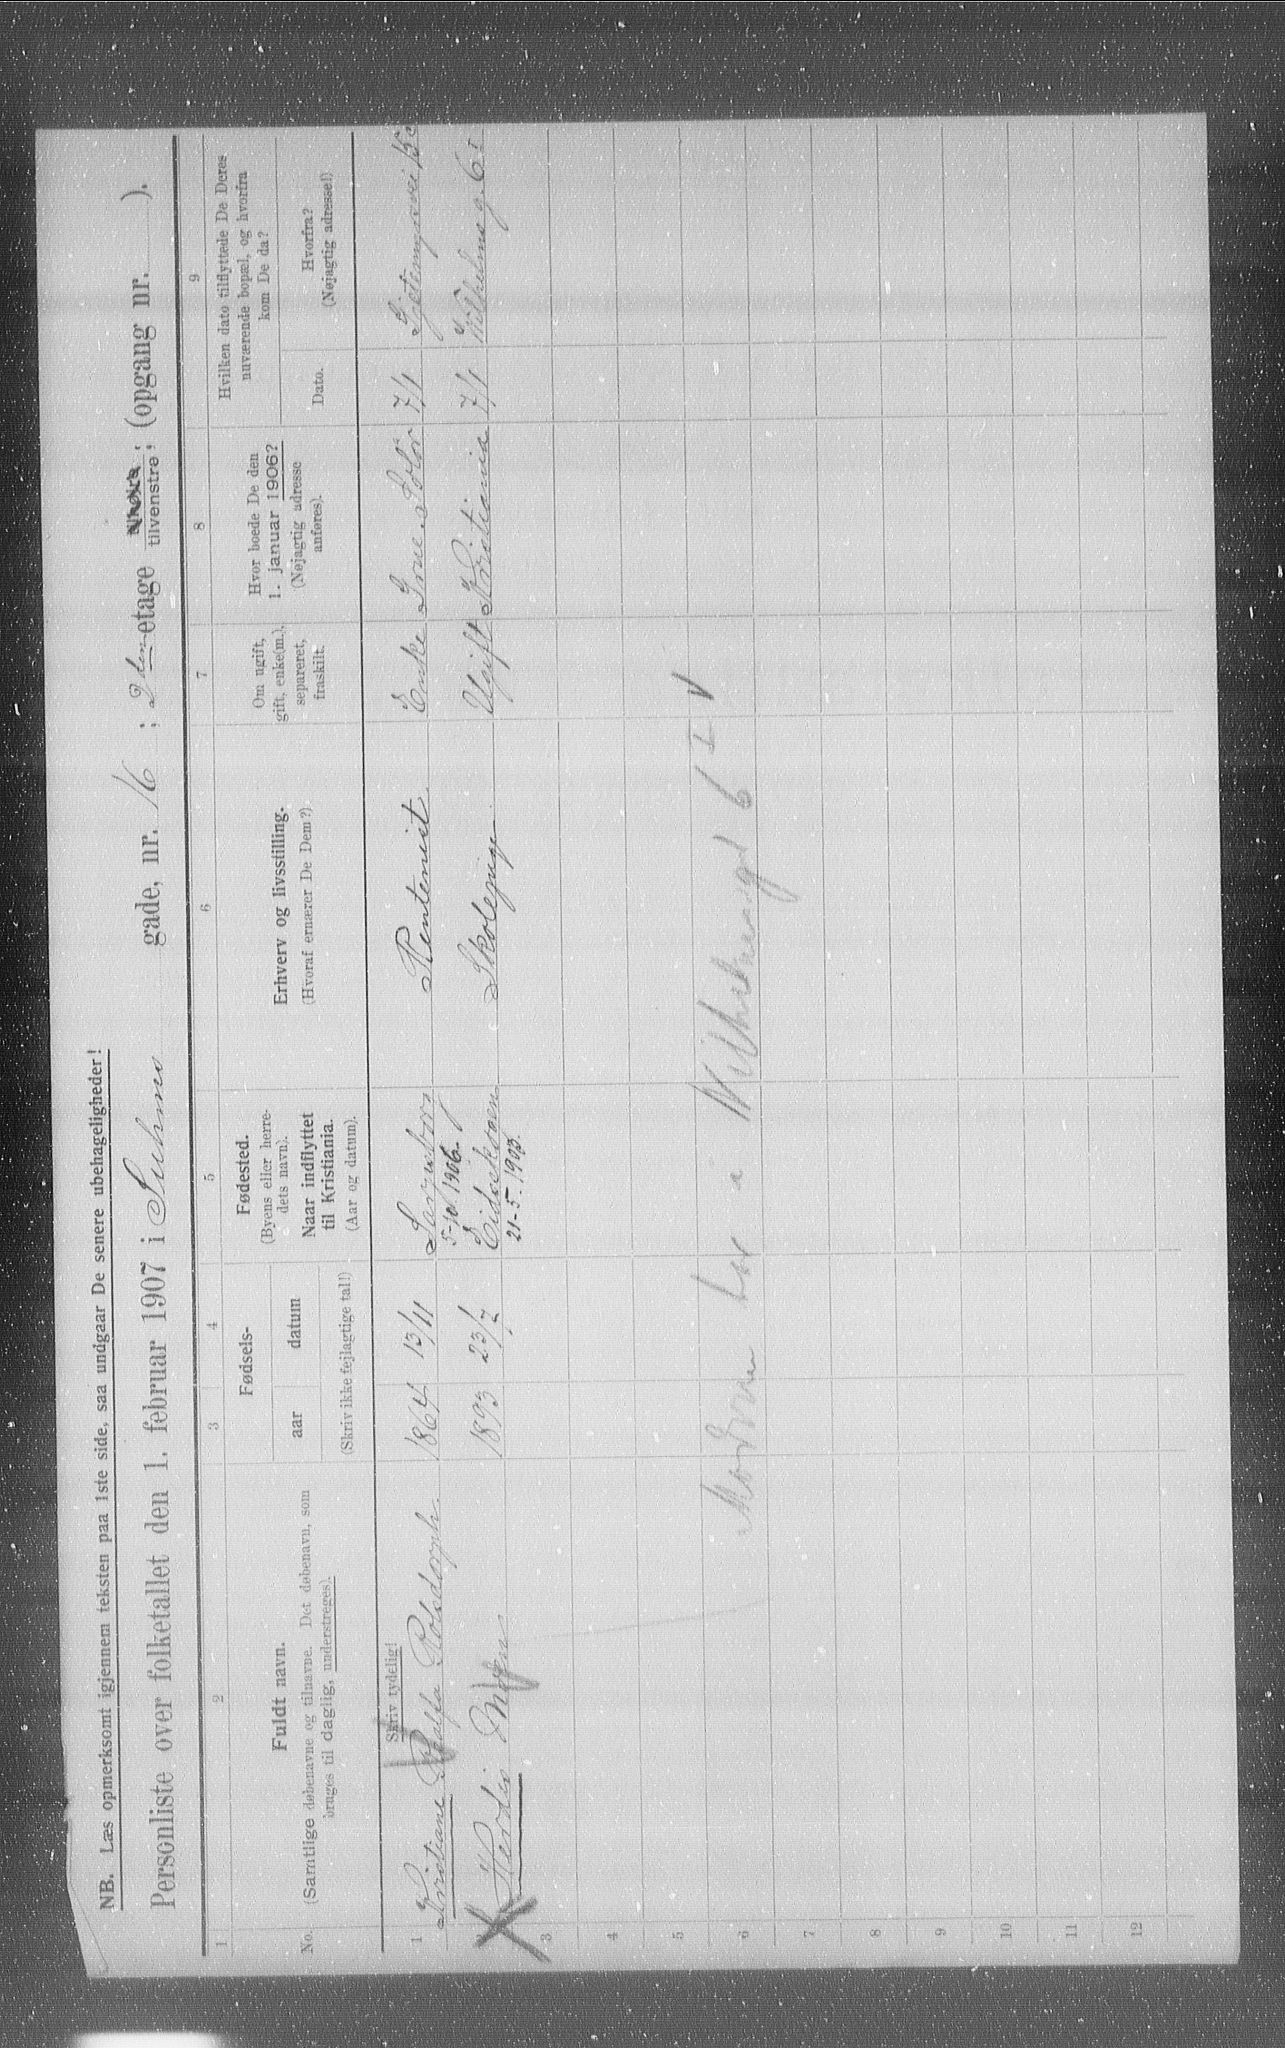 NB. Læs opmerksomt igjennem teksten paa 1ste side, saa undgaar De senere ubehageligheder!
Personliste over folketallet den 1. februar 1907 i Suhms gade, nr. 16 ; 2den etage tilvenstre ; (opgang nr. ).
1 2 3 4 5 6 7 8 9
No.
Fuldt navn.
(Samtlige døbenavne og tilnavne. Det døbenavn, som
bruges til daglig, understreges).
Fødsels-
aar datum
(Skriv ikke fejlagtige tal!)
Fødested.
(Byens eller herre-
dets navn).
Naar indflyttet
til Kristiania.
(Aar og datum).
Erhverv og livsstilling.
(Hvoraf ernærer De Dem?)
Om ugift,
gift, enke(m.),
separeret,
fraskilt.
Hvor boede De den
1. januar 1906?
(Nøjagtig adresse
anføres).
Hvilken dato tilflyttede De Deres
nuværende bopæl, og hvorfra
kom De da?
Dato.
Hvorfra?
(Nøjagtig adresse!)
Skriv tydelig!
1 Kristiane Rolfsdorph. 1864 13/11 Sarpsborg Enke Grue. Solør 7/1
5-10 1906.
Herdis 1893 23/7 Eidsskogen Skolepige Ugift Kristiania 7/1 Vilhelms g. 6 I
21-5-1903.
3
4
5
Moderen bor i Wilhelmsgd 6 I V
6
7
8
9
10
11
12